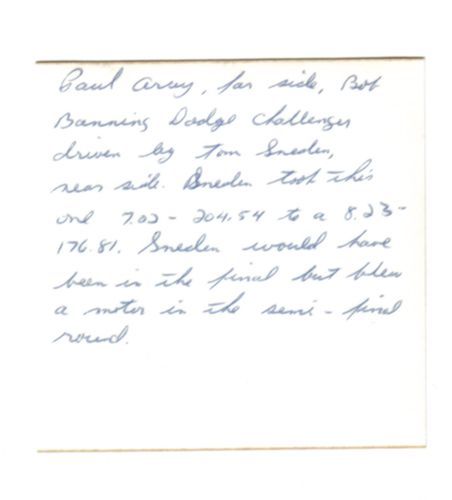 Paul Arvy, far side, Bob
Banning Dodge Challenger
driven by Tom Sneden,
near side. Sneden took this
one 7.02 - 204.54 to a 8.23 -
176.81. Sneden would have
been in the final but blew
a motor in the semi-final
round.